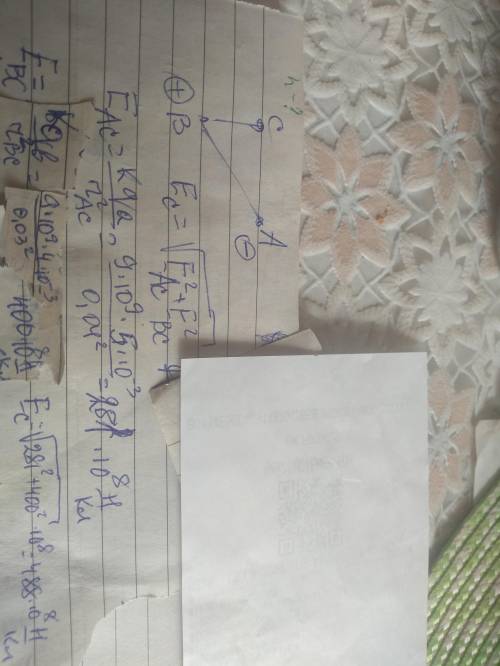 r - ?
C
A
⊖
⊕ B
E_C = √E²_AC + F²_BC
E_AC = Kqa / r²_AC = 9·10⁹·5·10⁻³ / 0,04² = 281·10⁸ Н/Кл
E_BC = Kqb / r²_BC = 9·10⁹·4·10⁻³ / 0,03² = 400·10⁸ Н/Кл
E_C = √281² + 400² ·10⁸ = 488·10⁸ Н/Кл